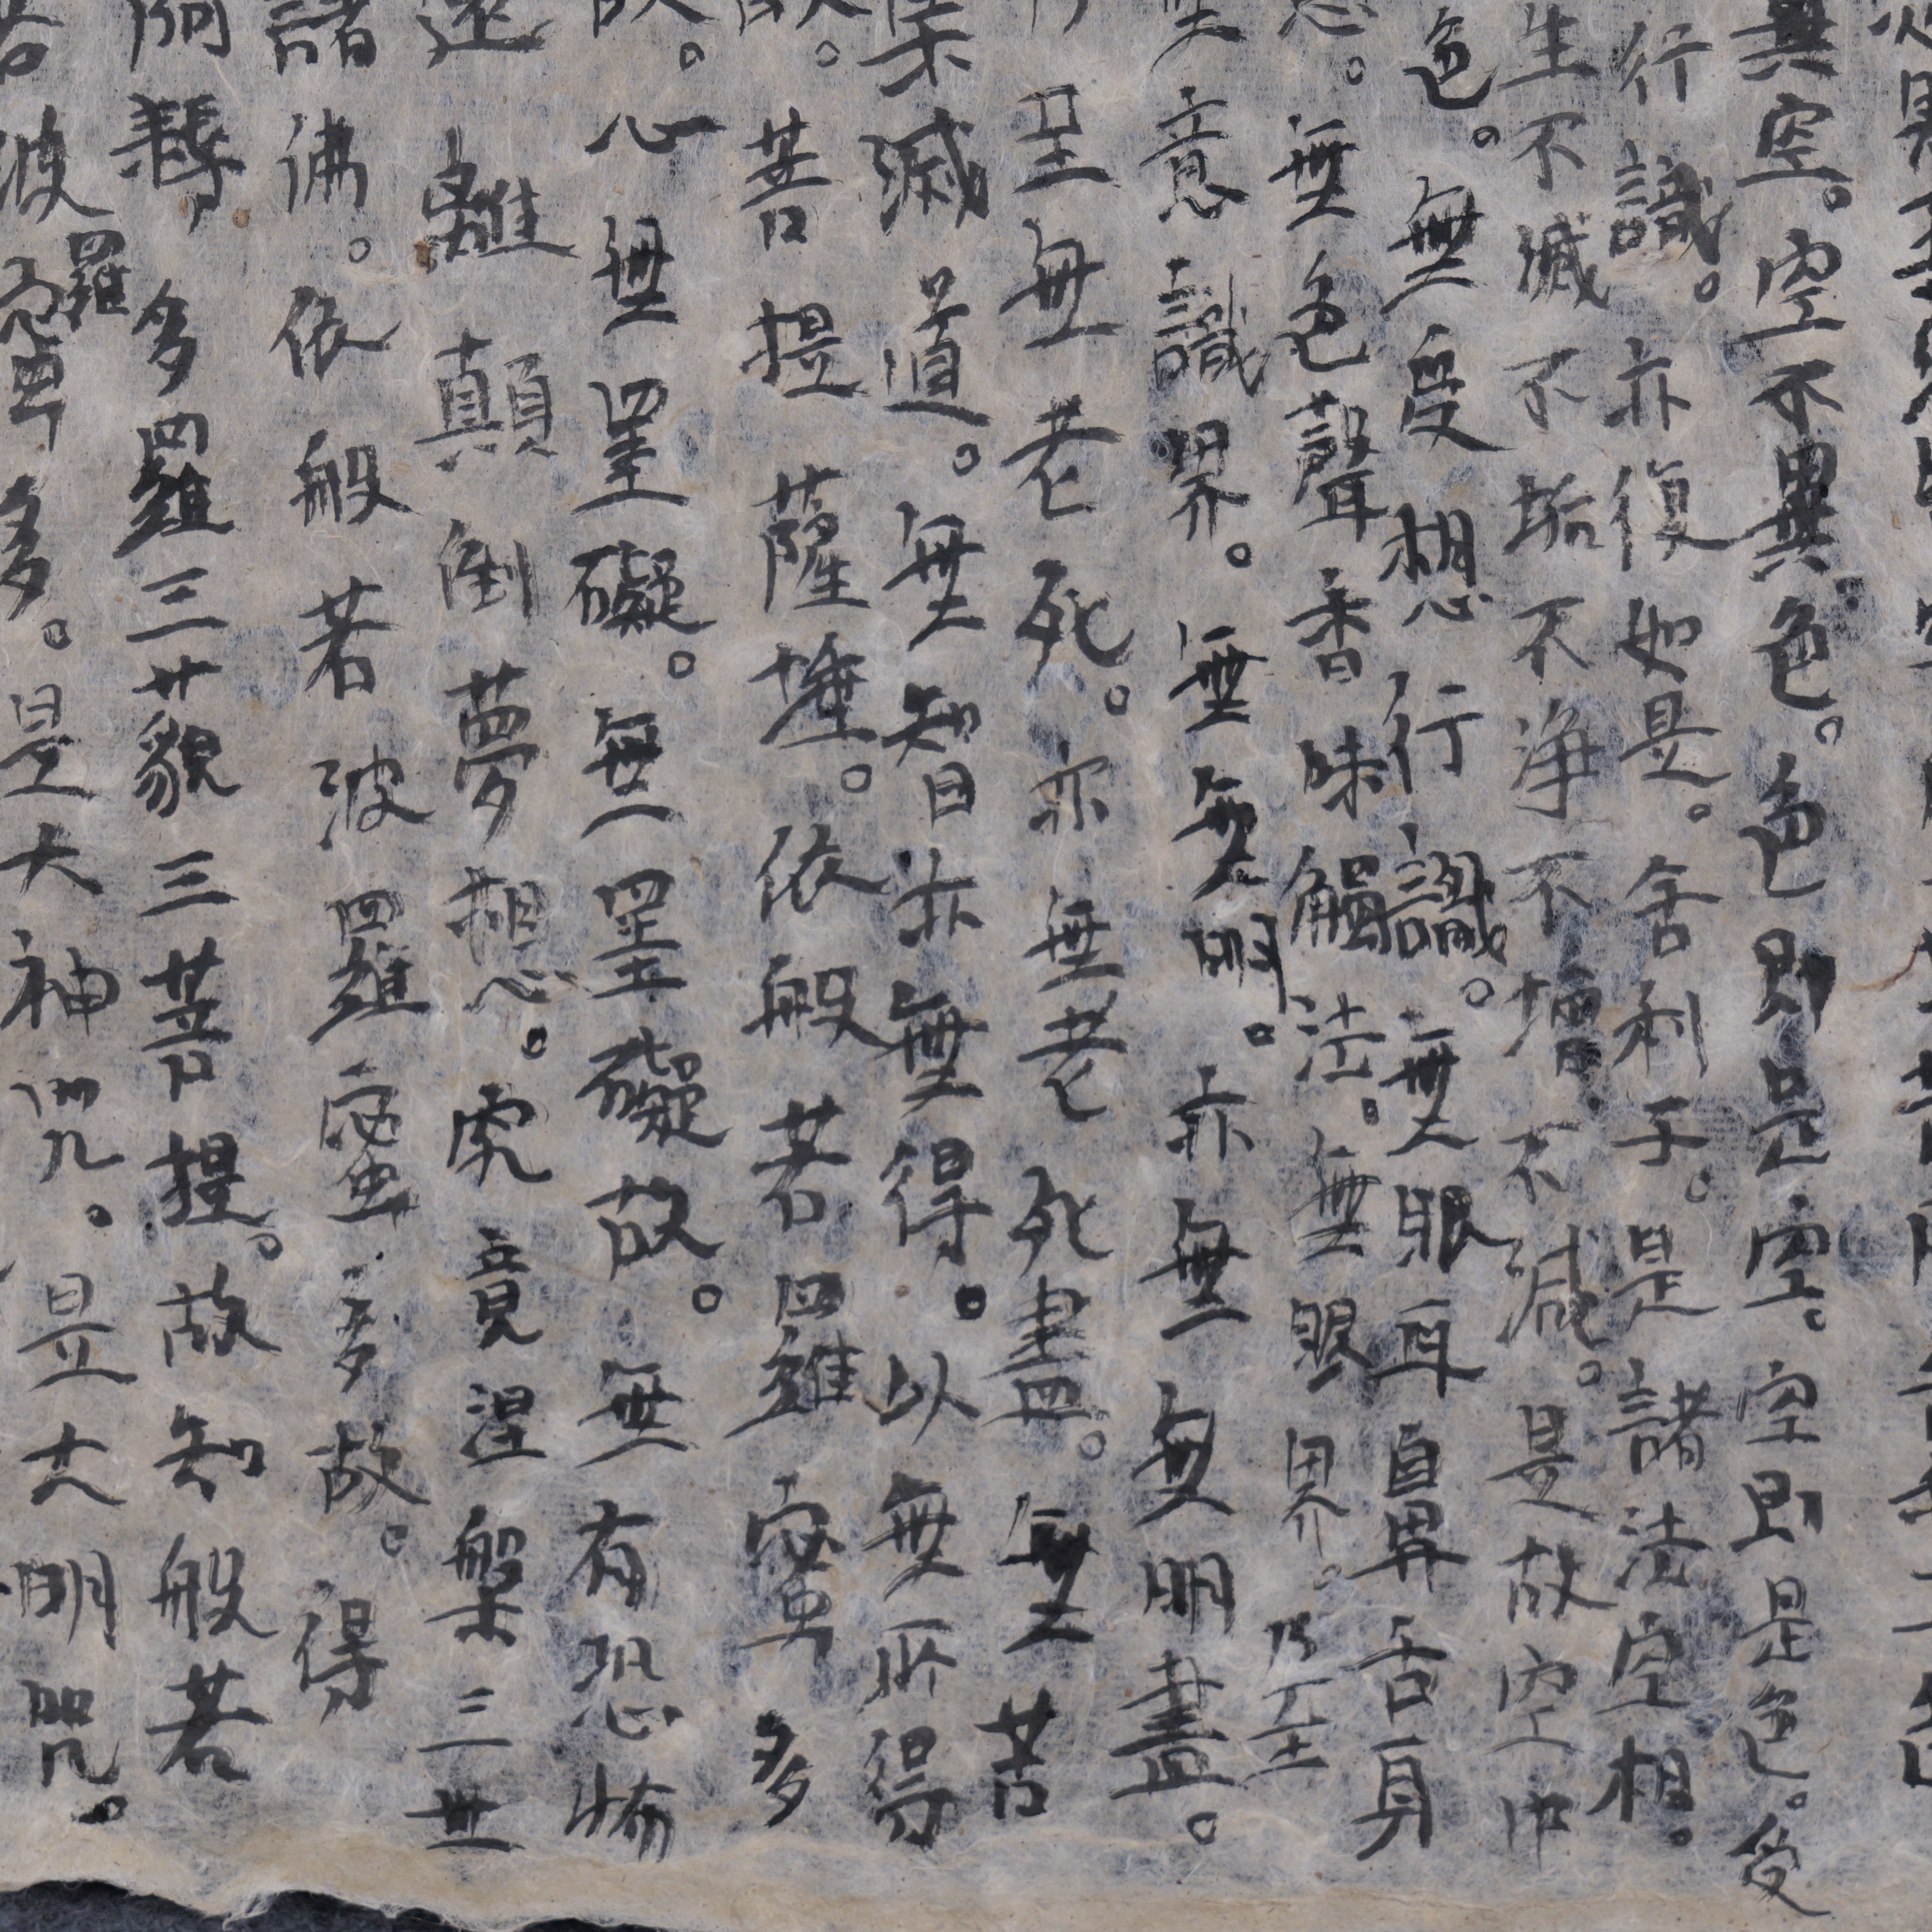 異空。空不異色。色即是空。空即是色。受
行識。亦復如是。舍利子。是諸法空相。
生不滅不垢不浄不増不減。是故空中
色。無受想行識。無眼耳鼻舌身
。無色聲香味觸法。無眼界。乃至
意識界。無無明。亦無無明盡。
至無老死。亦無老死盡。無苦
集滅道。無智亦無得。以無所得
故。菩提薩埵。依般若羅蜜多
故。心無罣礙。無罣礙故。無有恐怖
遠離顛倒夢想。究竟涅槃三世
諸佛。依般若波羅蜜多故。得
阿耨多羅三藐三菩提。故知般若
波羅蜜多。是大神咒。是大明咒。